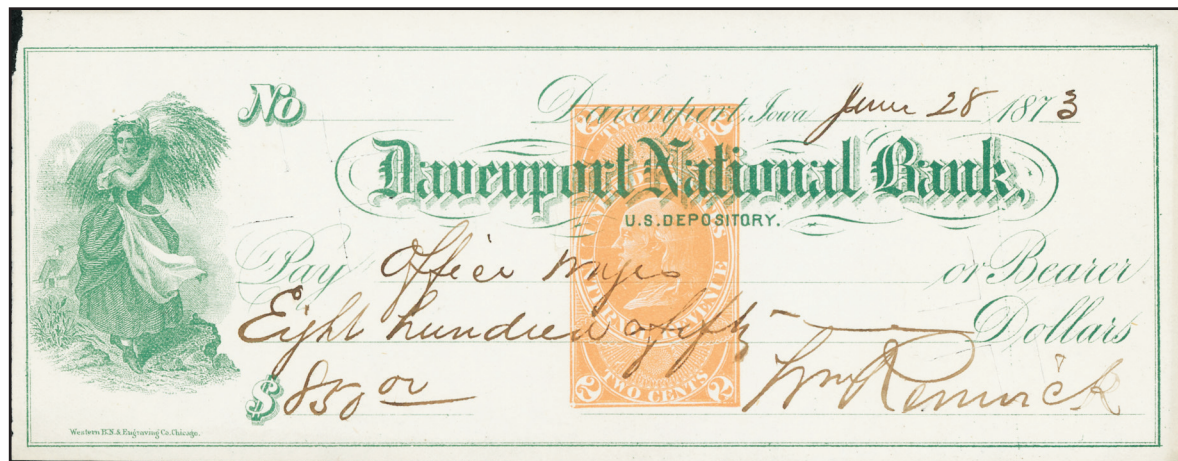 No Davenport, Iowa June 28 1873
Davenport National Bank,
U.S. DEPOSITORY.
Pay Office wages or Bearer
Eight hundred & fifty Dollars
$ 850 00 Wm Renwick
TWO CENTS
UNITED STATES
INTER. REVENUE
2 TWO CENTS 2
Western B.N. & Engraving Co. Chicago.